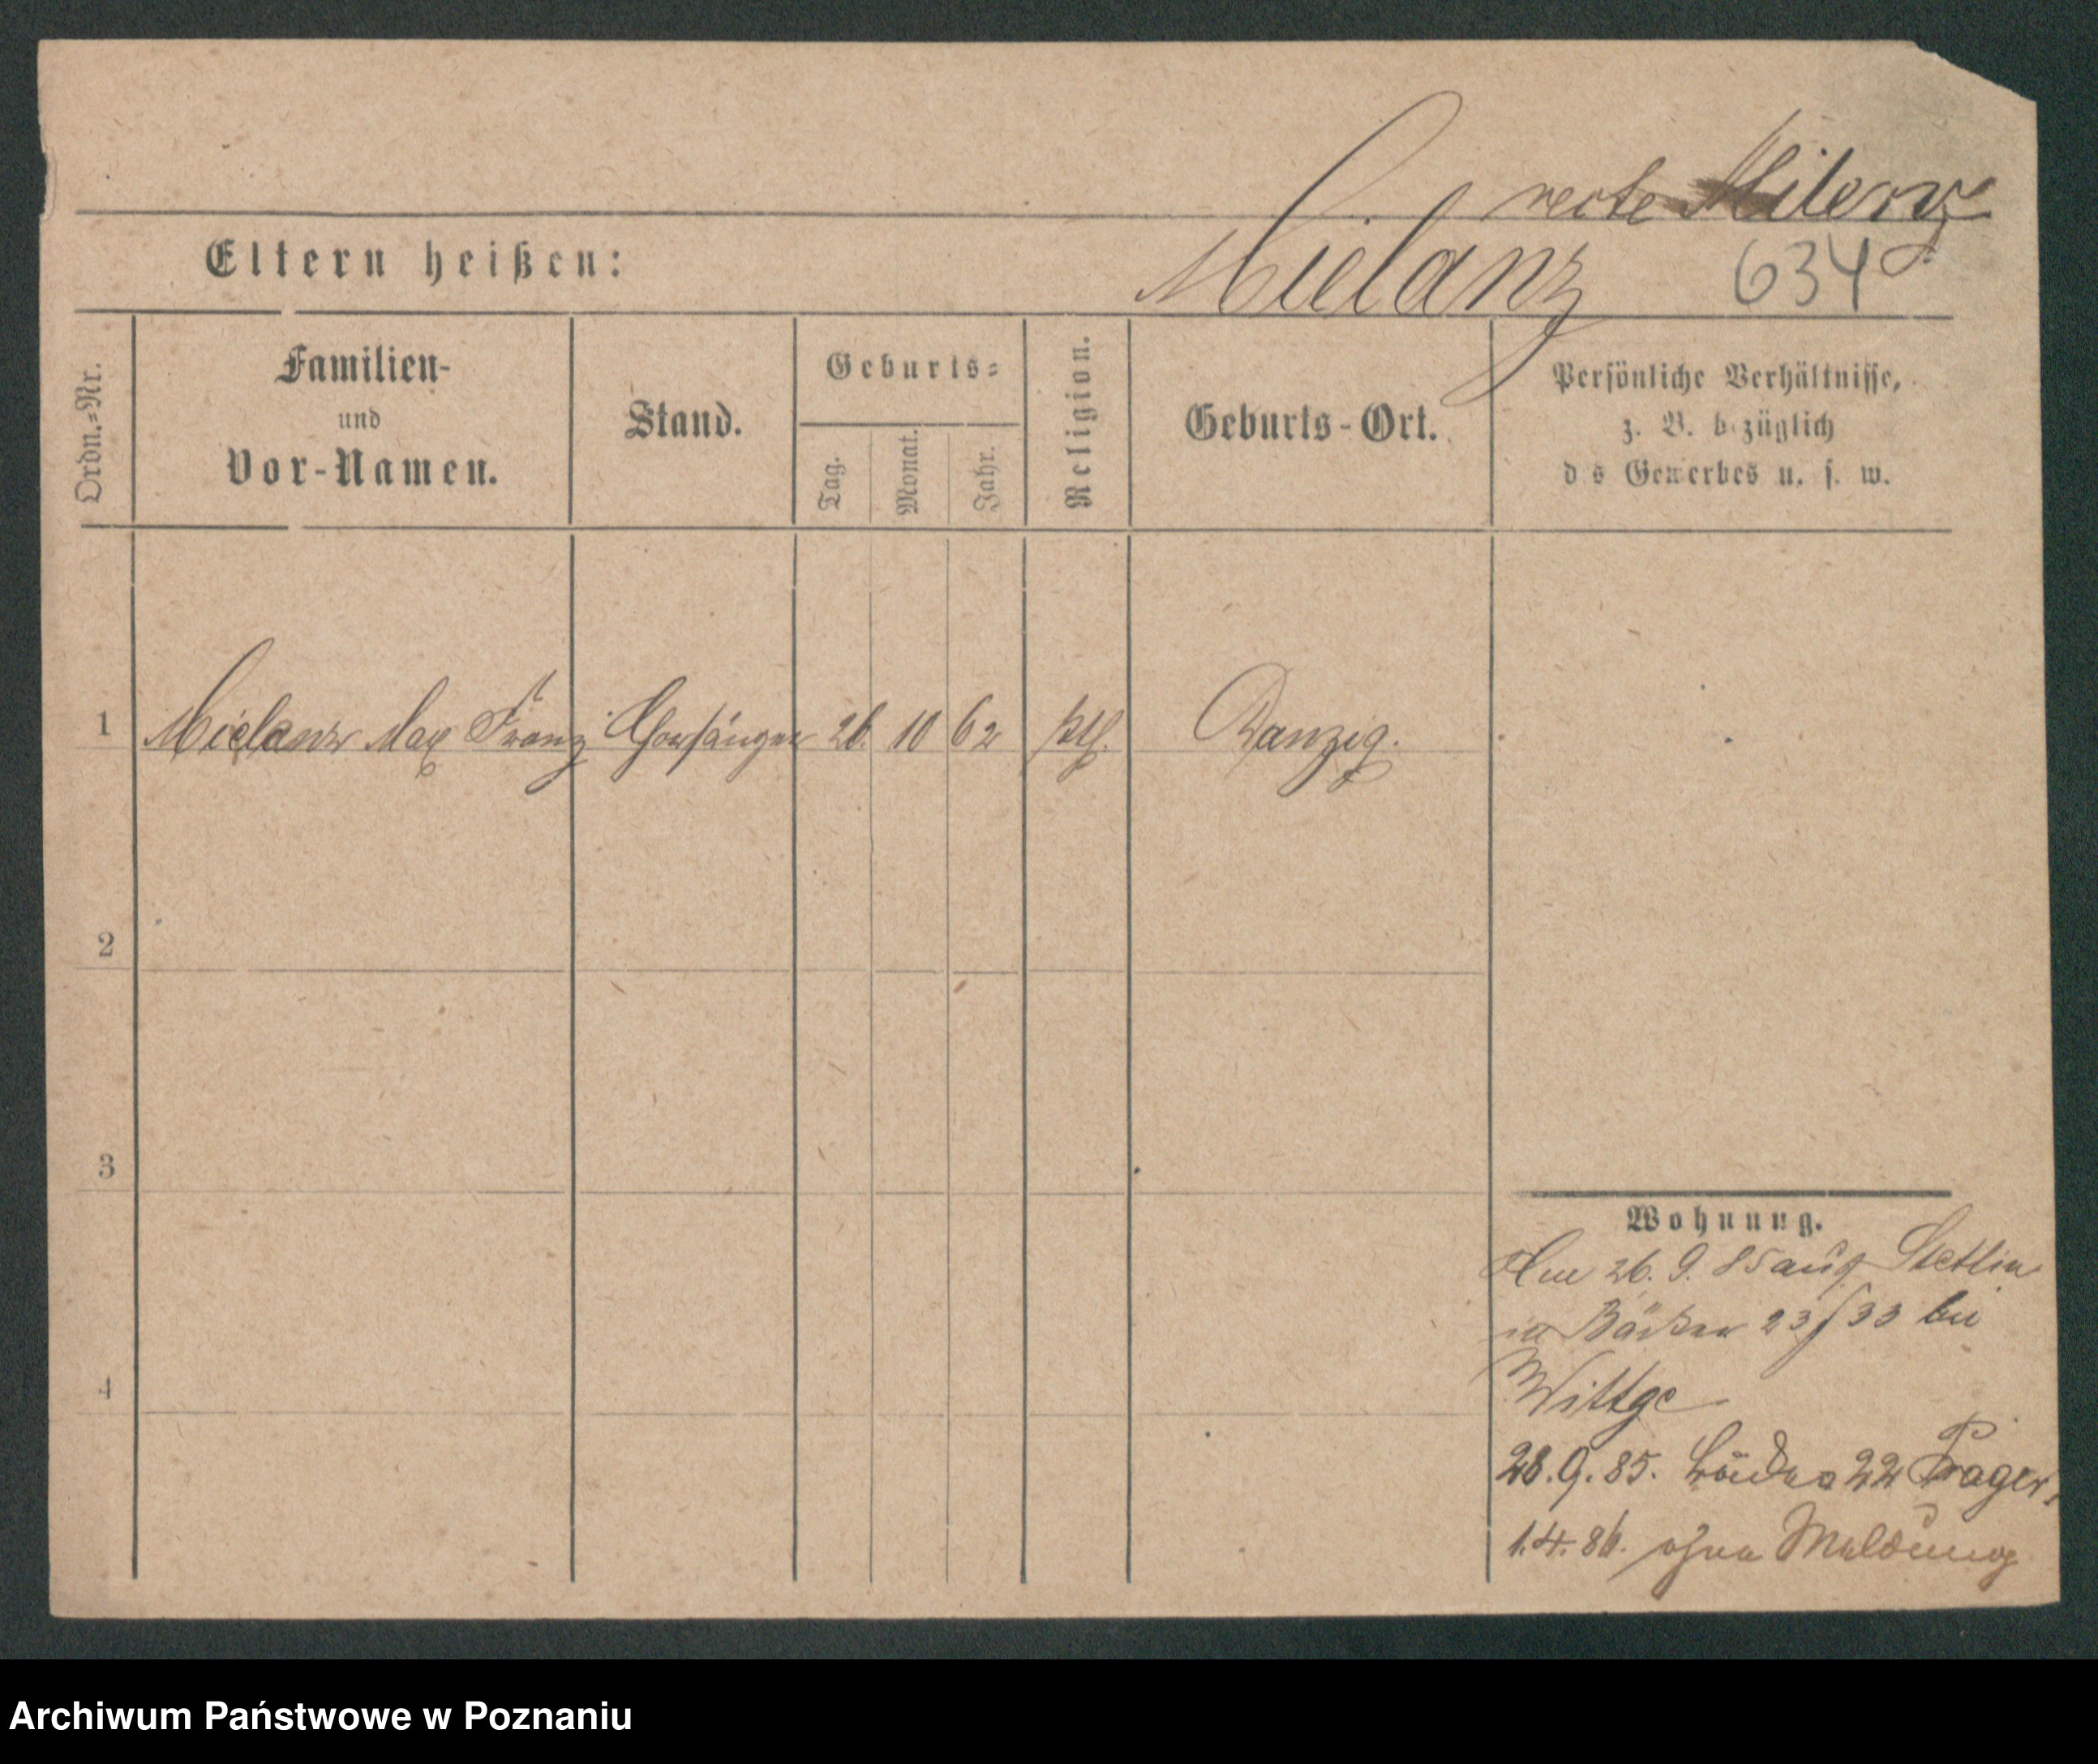 recte Milenz
Eltern heißen:
Mielanz
634
Ordn.=Nr.
Familien-
und
Vor-Namen.
Stand.
Geburts=
Tag.
Monat.
Jahr.
Religion.
Geburts-Ort.
Persönliche Verhältnisse,
z. B. bezüglich
des Gewerbes u. s. w.
1 Mielanz Max Franz Chorsänger 26. 10 62 ktl. Danzig.
2
3
4
Wohnung.
26. 9. 85 aus Stettin
Bäcker 23/33 bei
Wittge
28.9.85. Bäcker 22 Prager.
1.4.86. ohne Meldung
Archiwum Państwowe w Poznaniu